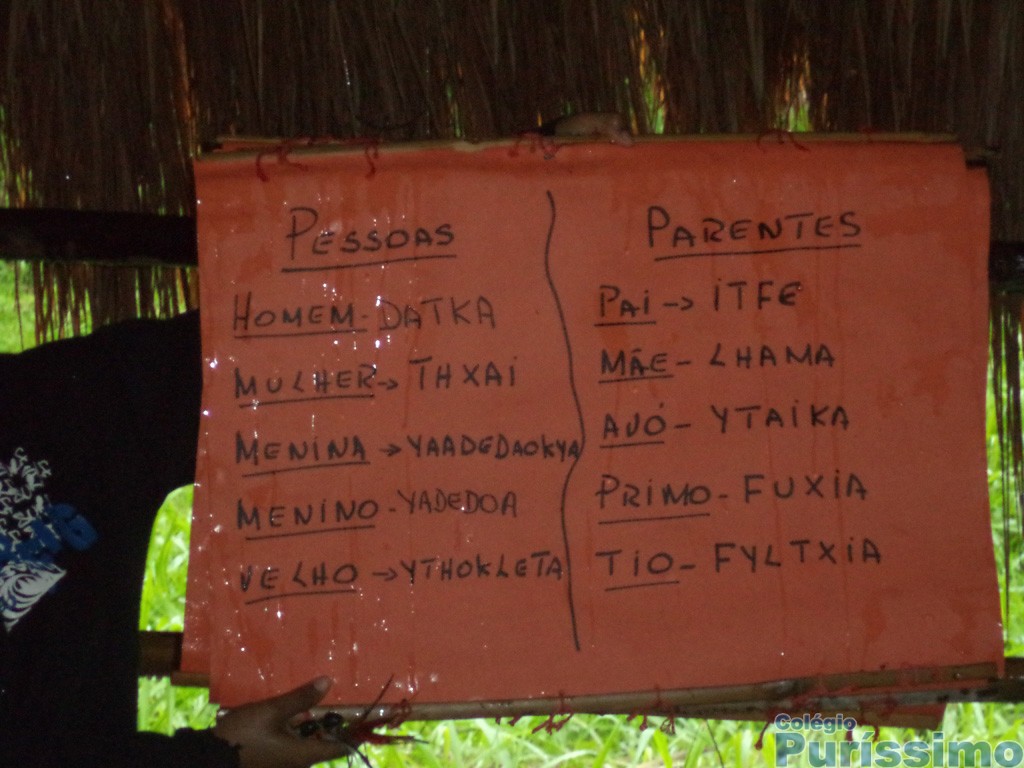 PESSOAS
HOMEM - DATKA
MULHER -> THXAI
MENINA -> YAADEDAOKYA
MENINO - YADEDOA
VELHO -> YTHOKLETA
PARENTES
PAI -> ITFE
MÃE - LHAMA
AVÓ - YTAIKA
PRIMO - FUXIA
TIO - FYLTXIA
Colégio
Puríssimo